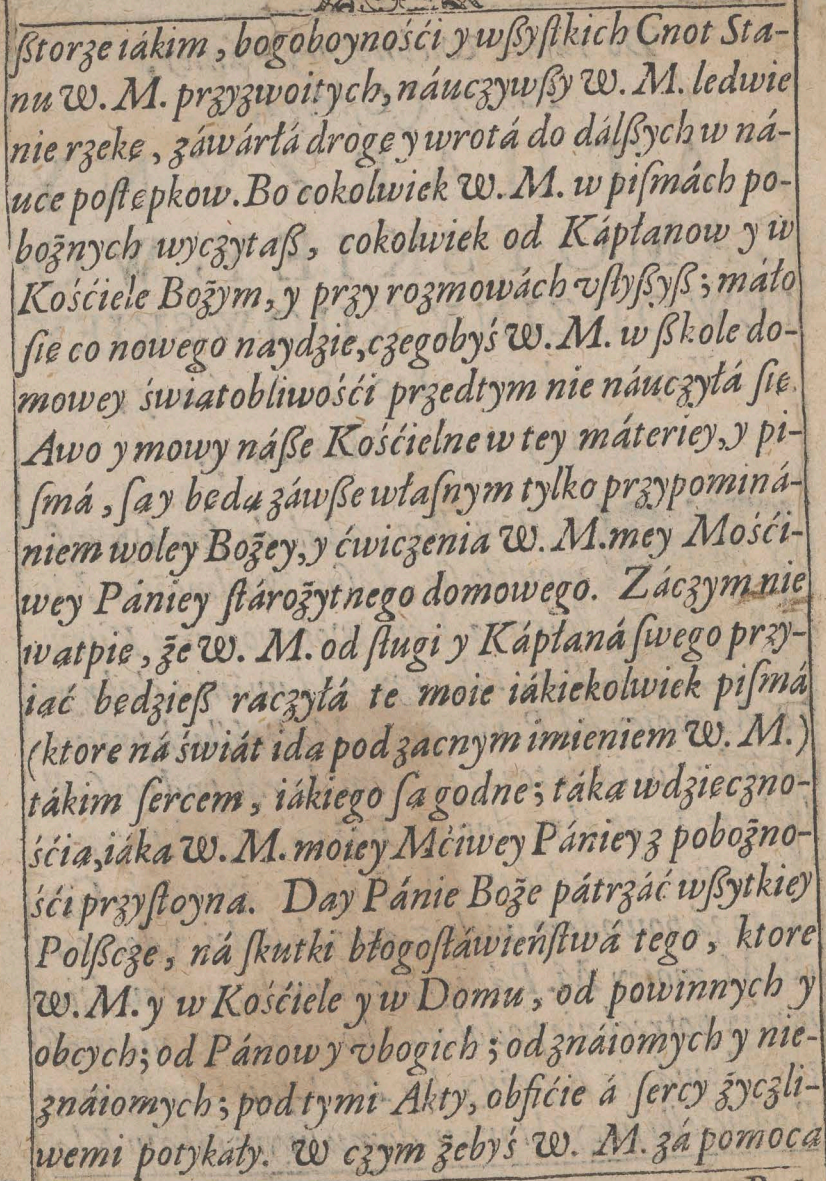 ßtorze iákim, bogoboynośći y wßyſtkich Cnot Sta-
nu W. M. przyzwoitych, náuczywßy W. M. ledwie
nie rzekę, záwárłá drogę y wrotá do dálßych w ná-
uce poſtępkow. Bo cokolwiek W. M. w piſmách po-
bożnych wyczytaß, cokolwiek od Kápłanow y w
Kośćiele Bożym, y przy rozmowách vſłyßyß; máło
ſię co nowego naydzie, czegobyś W. M. w ßkole do-
mowey świątobliwośći przedtym nie náuczyłá ſię.
Awo y mowy náße Kośćielne w tey máteriey, y pi-
ſmá, ſą y będą záwße właſnym tylko przypominá-
niem woley Bożey, y ćwiczenia W. M. mey Mośći-
wey Pániey ſtárożytnego domowego. Záczym nie
wątpię, że W. M. od ſługi y Kápłaná ſwego przy-
iąć będzieß raczyłá te moie iákiekolwiek piſmá
(ktore ná świát idą pod zacnym imieniem W. M.)
tákim ſercem, iákiego ſą godne; táką wdzięczno-
śćią, iáka W. M. moiey Mćiwey Pániey z pobożno-
śći przyſtoyna. Day Pánie Boże pátrzáć wßytkiey
Polßcze, ná ſkutki błogoſłáwieńſtwá tego, ktore
W. M. y w Kośćiele y w Domu, od powinnych y
obcych; od Pánow y vbogich; od znáiomych y nie-
znáiomych; pod tymi Akty, obfićie á ſercy życzli-
wemi potykáły. W czym żebyś W. M. zá pomocą